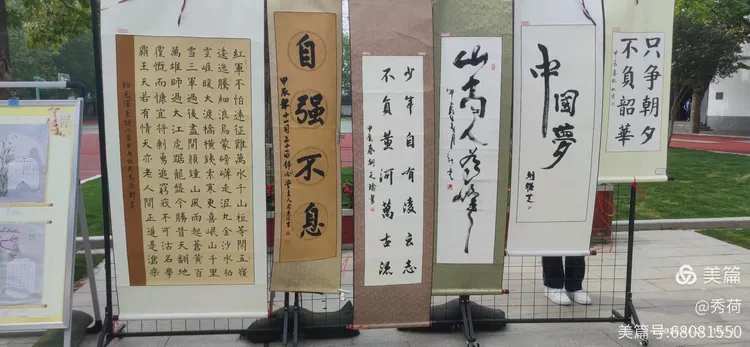 紅軍不怕遠征難萬水千山衹等閑五嶺
逶迤騰細浪烏蒙磅礴走泥丸金沙水拍
雲崖暖大渡橋橫鐵索寒更喜岷山千里
雪三軍過後盡開顏鍾山風雨起蒼黃百
萬雄師過大江虎踞龍盤今勝昔天翻地
覆慨而慷宜將剩勇追窮寇不可沽名學
霸王天若有情天亦老人間正道是滄桑
自强不息
少年自有凌云志
不負黄河萬古流
山高人為峰
中國夢
只争朝夕
不负韶华
美篇
@秀荷
美篇号:68081550